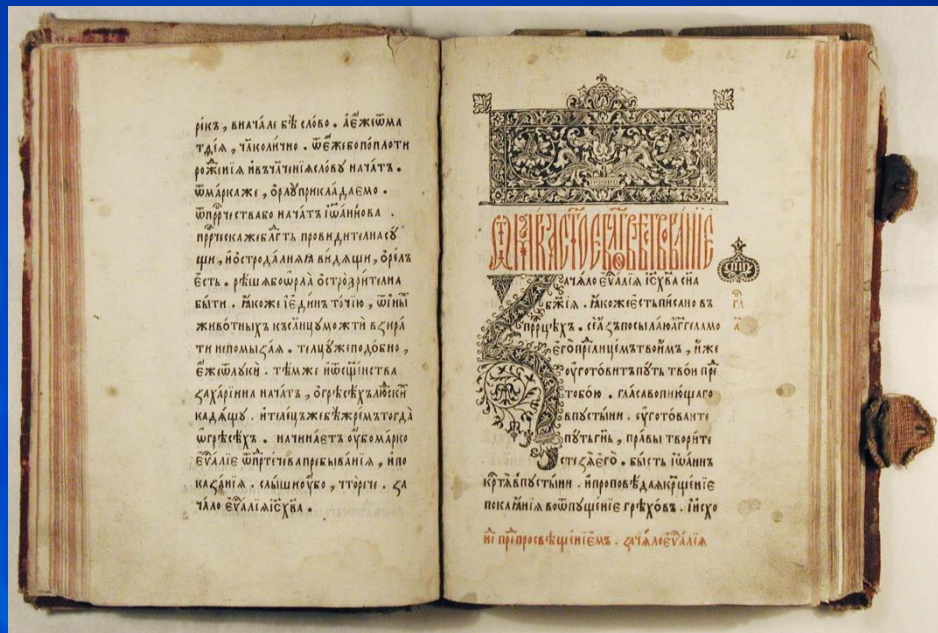 рекъ, вначале бѣ слово. а є҆́жеѿма
тѳе́я, чл҃коли́чно. ѿе҆́жебопопло́ти
роже́нїѧ ивъчл҃че́нїѧсло́ву нача́тъ.
ѿма́ркаже, о҆рлу̀прикла́даємо.
ѿпрⷪ҇ро́чествабо нача́тъ їѡа́ннова.
прⷪ҇ро́ческажеблгⷣть провиди́телнасꙋ́
щи, и҆о҆строда́лнѧꙗ ви́дѧщи, о҆ре́лъ
є҆́сть. рѣ́шѧбоѡ҆рла̀ о҆стрѻзри́телна
бы́ти. ꙗ҆́коже ї҆еди́нъ то́чїю, ѿи҆ны́
живо́тныхъ късл҃нцꙋмо́жтѝ взира́
ти непомы́заꙗ. телцꙋ́жеподо́бно,
є҆́жеѿлꙋкѝ. тѣ́мже и҆ѿсщ҃е́нства
заха́рїина нача́тъ, ѻ҆грѣсѣ́хълю́скѝ
кадѧ́щꙋ. и҆теле́цъжебѣжре́мътогда̀
ѡ҆грѣсѣ́хъ. начина́етъ оу҆́бома́рко
є҆ѵⷢ҇а́лїе ѿпрⷣте́чевапребыва́нїѧ, и҆по
каза́нїѧ. слы́шиоу҆́бо, что̀рече. за
ча́ло є҆ѵⷢ҇а́лїѧі҆сх҃ва.
ча́ло є҆ѵⷢ҇а́лїѧ і҆сх҃ва сн҃а
бж҃їѧ. ꙗ҆́кожее҆́стьпи́сано въ
прⷪ҇ро́цѣхъ. се́а҆́зъпосыла́юа҆́гг҃ела мо
є҆гѡ̀прⷣели́цемътвои́мъ, и҆́же
оу҆гото́витъпꙋ́ть тво́и пре
тобо́ю. гла́свопию́щаго
впꙋсты́ни. оу҆гото́ваите
пꙋ́тьгⷭ҇нь, пра́вы твори́те
стезѧ̀є҆гѡ̀. бы́сть їѡа́ннъ
крⷭ҇тѧ́впꙋсты́ни. и҆проповѣ́даꙗкрⷳще́нїе
покаꙗ́нїѧ воѿпꙋще́нїе грѣхо́въ. и҆исхо
нⷣе прⷣепросвѣще́нїемъ. зача́лоє҆ѵⷢ҇а́лїѧ